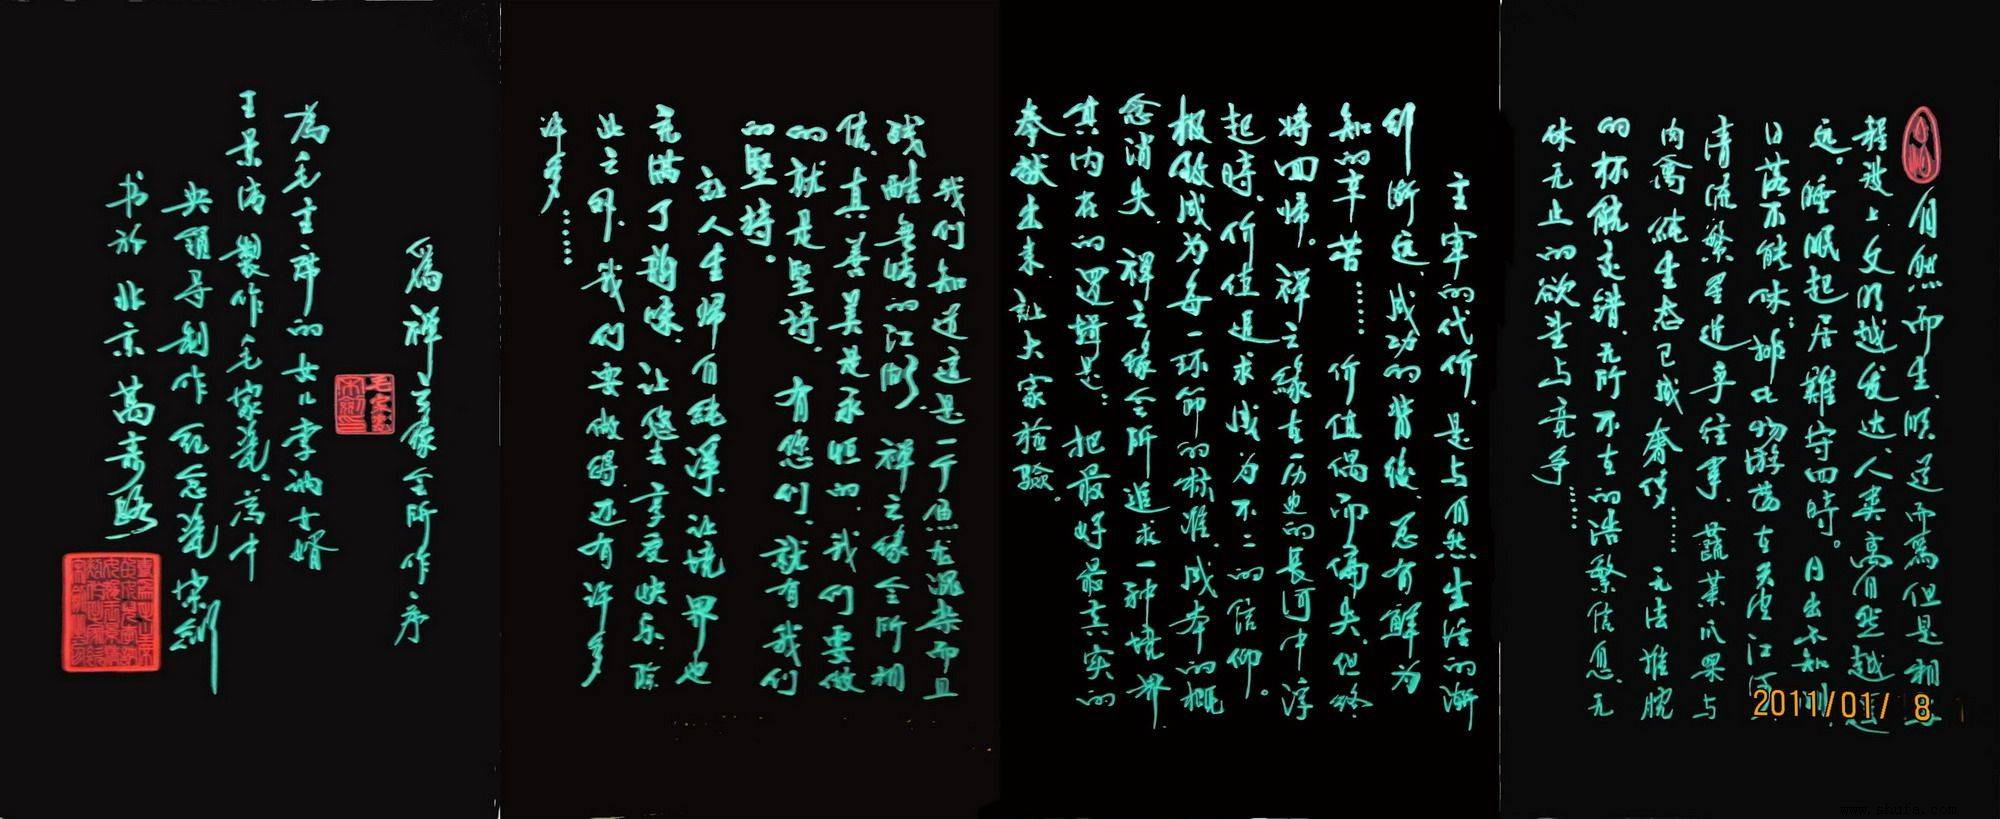 自然而生，顺道而为但是相
程ever上文明越发达，人类离自然越
远。睡眠起居难守四时。日出不知
日落不能
清流繁星近乎往事，蔬菜瓜果与
肉禽纯生态已成奢侈……无法推脱
的杯觥交错，无所不在的浩繁信息，无
休无止的欲望与竞争……
主宰的代价，是与自然生活的渐
行渐远，成功的背后，总有鲜为
知的辛苦……价值偶而偏失，但终
将回归。禅之缘在历史的长河中淳
起时，价值追求成为不二的信仰。
极致成为每一环节的标准，成本的概
念消失，禅之缘会所追求一种境界
其内在的逻辑是：把最好最真实的
奉献出来，让大家检验。
我们知道这是一个鱼龙混杂而且
残酷无情的江湖，禅之缘会所相
信，真善美是永恒的，我们要做
的就是坚持，有您们，就有我们
的坚持。
让人生归有纯净，让境界也
充满了韵味，让您去享受快乐，除
此之外，我们要做得还有许多
许多……
为禅之缘会所作序
为毛主席的女儿李讷女婿
王景清制作毛家瓷，为中
央领导制作纪念瓷
书于北京万寿路
2011/01/ 8
www.shufa.com